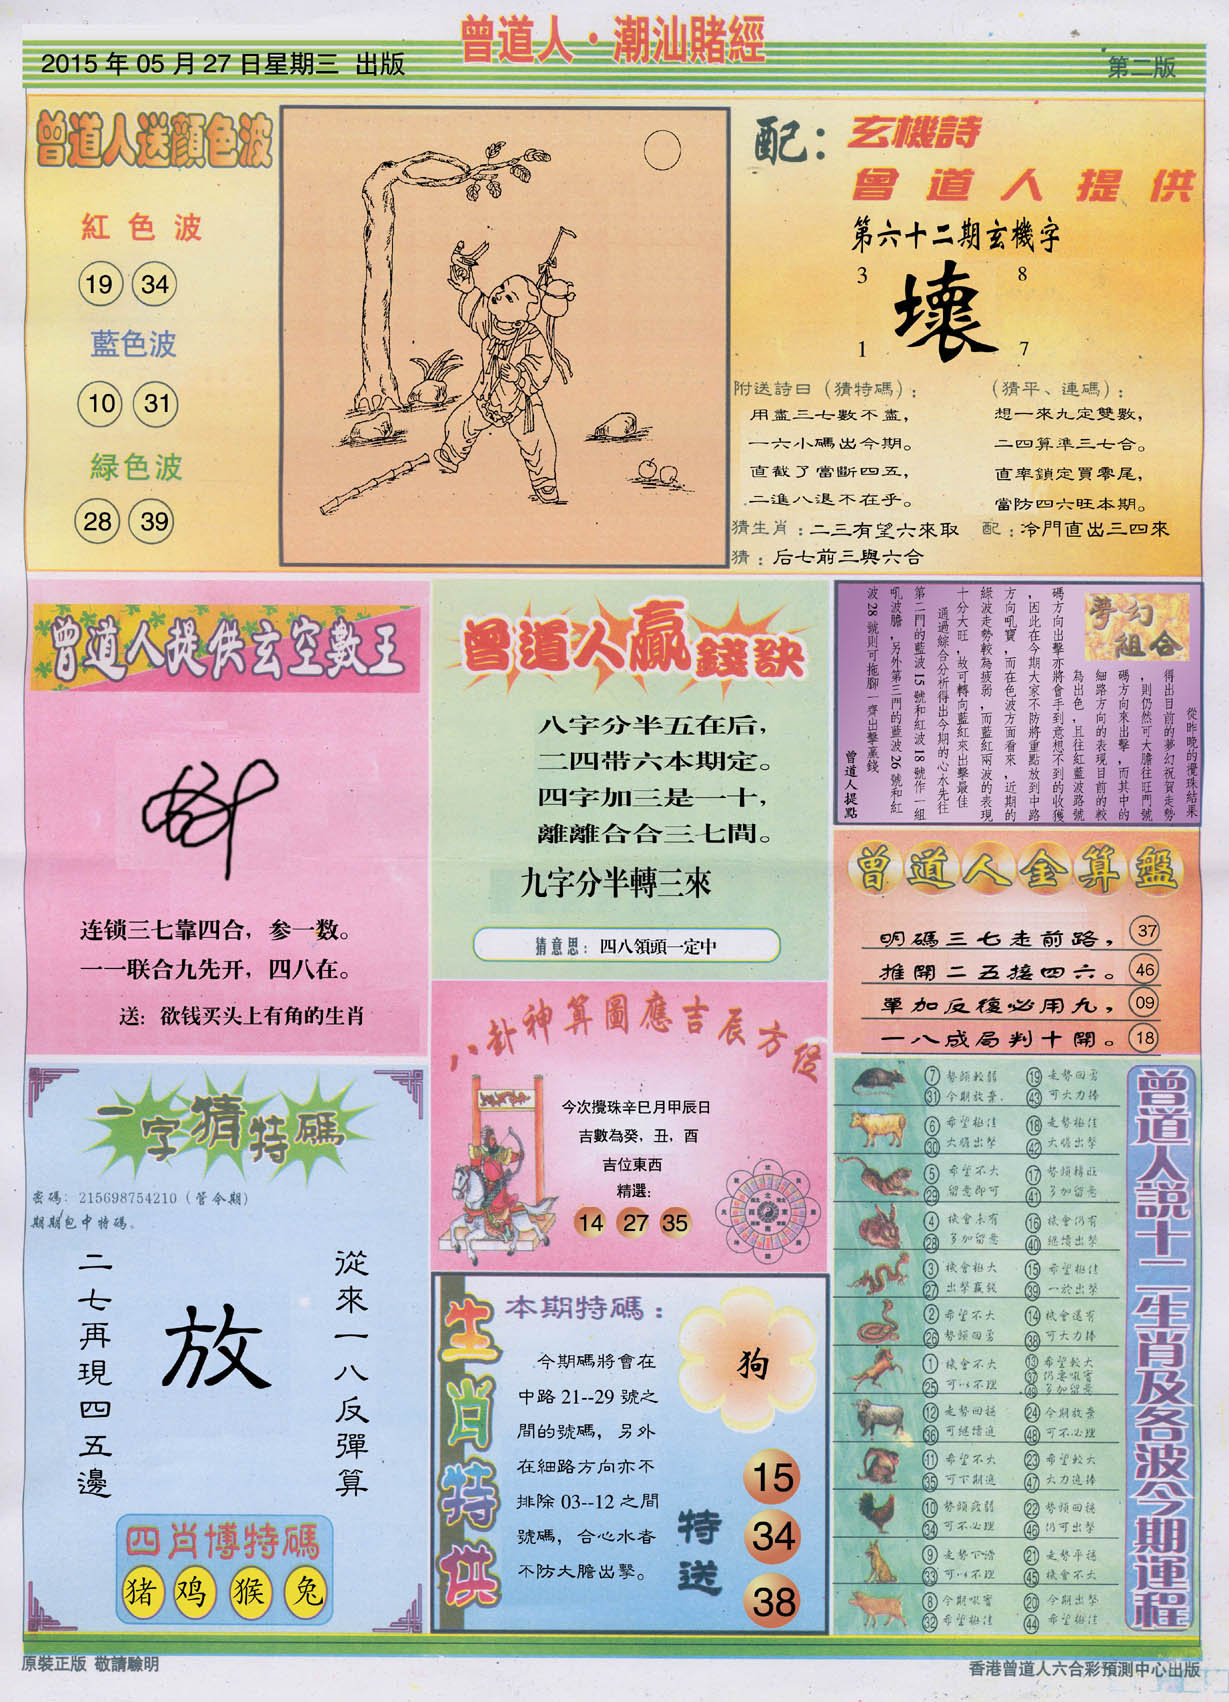 曾道人·潮汕賭經
2015年05月27日星期三 出版
第二版
曾道人送顏色波
紅色波
19 34
藍色波
10 31
緑色波
28 39
配：玄機詩
曾道人提供
第六十二期玄機字
3 8
壞
1 7
附送詩曰（猜特碼）：
用盡三七數不盡，
一六小碼出今期。
直截了當斷四五，
二進八退不在乎。
（猜平、連碼）：
想一來九定雙數，
二四算準三七合。
直率鎖定買零尾，
當防四六旺本期。
猜生肖：二三有望六來取
配：冷門直出三四來
猜：后七前三與六合
曾道人提供玄空數王
连锁三七靠四合，参一数。
一一联合九先开，四八在。
送：欲钱买头上有角的生肖
曾道人贏錢訣
八字分半五在后，
二四带六本期定。
四字加三是一十，
離離合合三七間。
九字分半轉三來
猜意思：四八領頭一定中
夢幻組合
從昨晚的攪珠結果
得出目前的夢幻祝賀走勢
，則仍然可大膽往旺門號
碼方向來出擊，而其中的
細路方向的表現目前的較
為出色，且往紅藍波路號
碼方向出擊亦將會手到意想不到的收獲
，因此在今期大家不防將重點放到中路
方向吼寶，而在色波方面看來，近期的
綠波走勢較為疲弱，而藍紅兩波的表現
十分大旺，故可轉向藍紅來出擊最佳
通過綜合分析得出今期的心水先往
第二門的藍波15號和紅波18號作一組
吼波膽，另外第三門的藍波26號和紅
波28號則可拖腳一齊出擊贏錢
曾道人提點
曾道人金算盤
明碼三七走前路， 37
推開二五接四六。 46
單加反復必用九， 09
一八成局判十開。 18
八卦神算圖應吉辰方位
今次攪珠辛巳月甲辰日
吉數為癸，丑，酉
吉位東西
精選：
14 27 35
一字猜特碼
密碼：215698754210（管今期）
期期包中特碼。
從來一八反彈算
放
二七再現四五邊
四肖博特碼
猪 鸡 猴 兔
生肖特供
本期特碼：
今期碼將會在
中路21--29號之
間的號碼，另外
在細路方向亦不
排除03--12之間
號碼，合心水者
不防大膽出擊。
狗
特送
15
34
38
曾道人說十二生肖及各波今期運程
7 勢頭較弱 19 走勢回勇
31 今期放棄 43 可大力捧
6 希望極佳 18 走勢極佳
30 大膽出擊 42 大膽出擊
5 希望不大 17 勢頭轉旺
29 留意即可 41 多加留意
4 機會未有 16 機會仍有
28 多加留意 40 繼續出擊
3 機會極大 15 希望極佳
27 出擊贏錢 39 一於出擊
2 希望不大 14 機會還有
26 勢頭回勇 38 可大力捧
1 機會不大 13 希望較大
25 可以不理 37 仍要吸寶
49 多加留意
12 走勢回穩 24 今期放棄
36 可繼續追 48 可不必理
11 希望不大 23 希望較大
35 可下期追 47 大力追捧
10 勢頭疲弱 22 勢頭回穩
34 可不必理 46 仍可出擊
9 走勢下滑 21 走勢平穩
33 可以不理 45 機會不大
8 今期吸寶 20 今期出擊
32 希望極佳 44 希望極佳
原裝正版 敬請驗明
香港曾道人六合彩預測中心出版